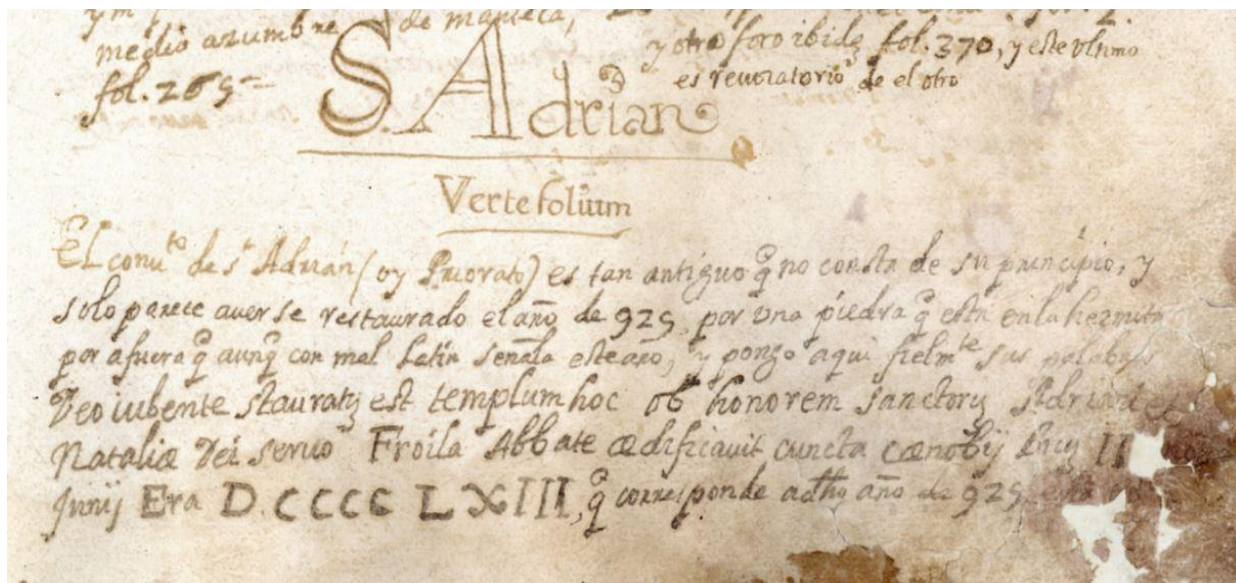 medio azumbre de manteca,
fol. 269=
y otro foro ibidẽ fol. 370, y este vltimo
es reuocatorio de el otro
S. Adrian
Verte folium
El conu.to de s.t Adrian (oy Priorato) es tan antiguo q̃ no consta de su principio, y
solo parece auerse restaurado el año de 925, por vna piedra q̃ esta en la hermita
por afuera q̃ aunq̃ con mal Latin señala este año, y pongo aqui fielm.te sus palabras
Deo iubente stauratȝ est templum hoc ob honorem sanctorȝ Adriani
Nataliæ Dei seruo Froila Abbate ædificauit cuncta cænobij II
Junij Era D.CCCC LXIII, q̃ corresponde adho año de 925